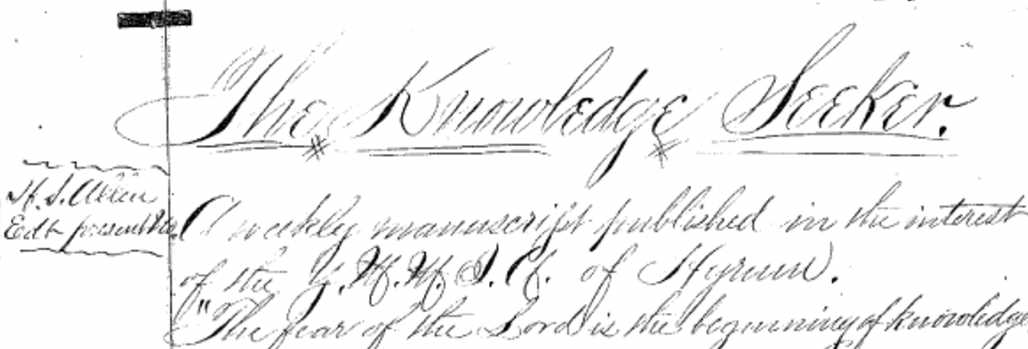 The Knowledge Seeker.
H. S. Allen
Edt present No.
A weekly manuscript published in the interest
of the Y. M. M. I. A. of Hyrum.
"The fear of the Lord is the beginning of knowledge